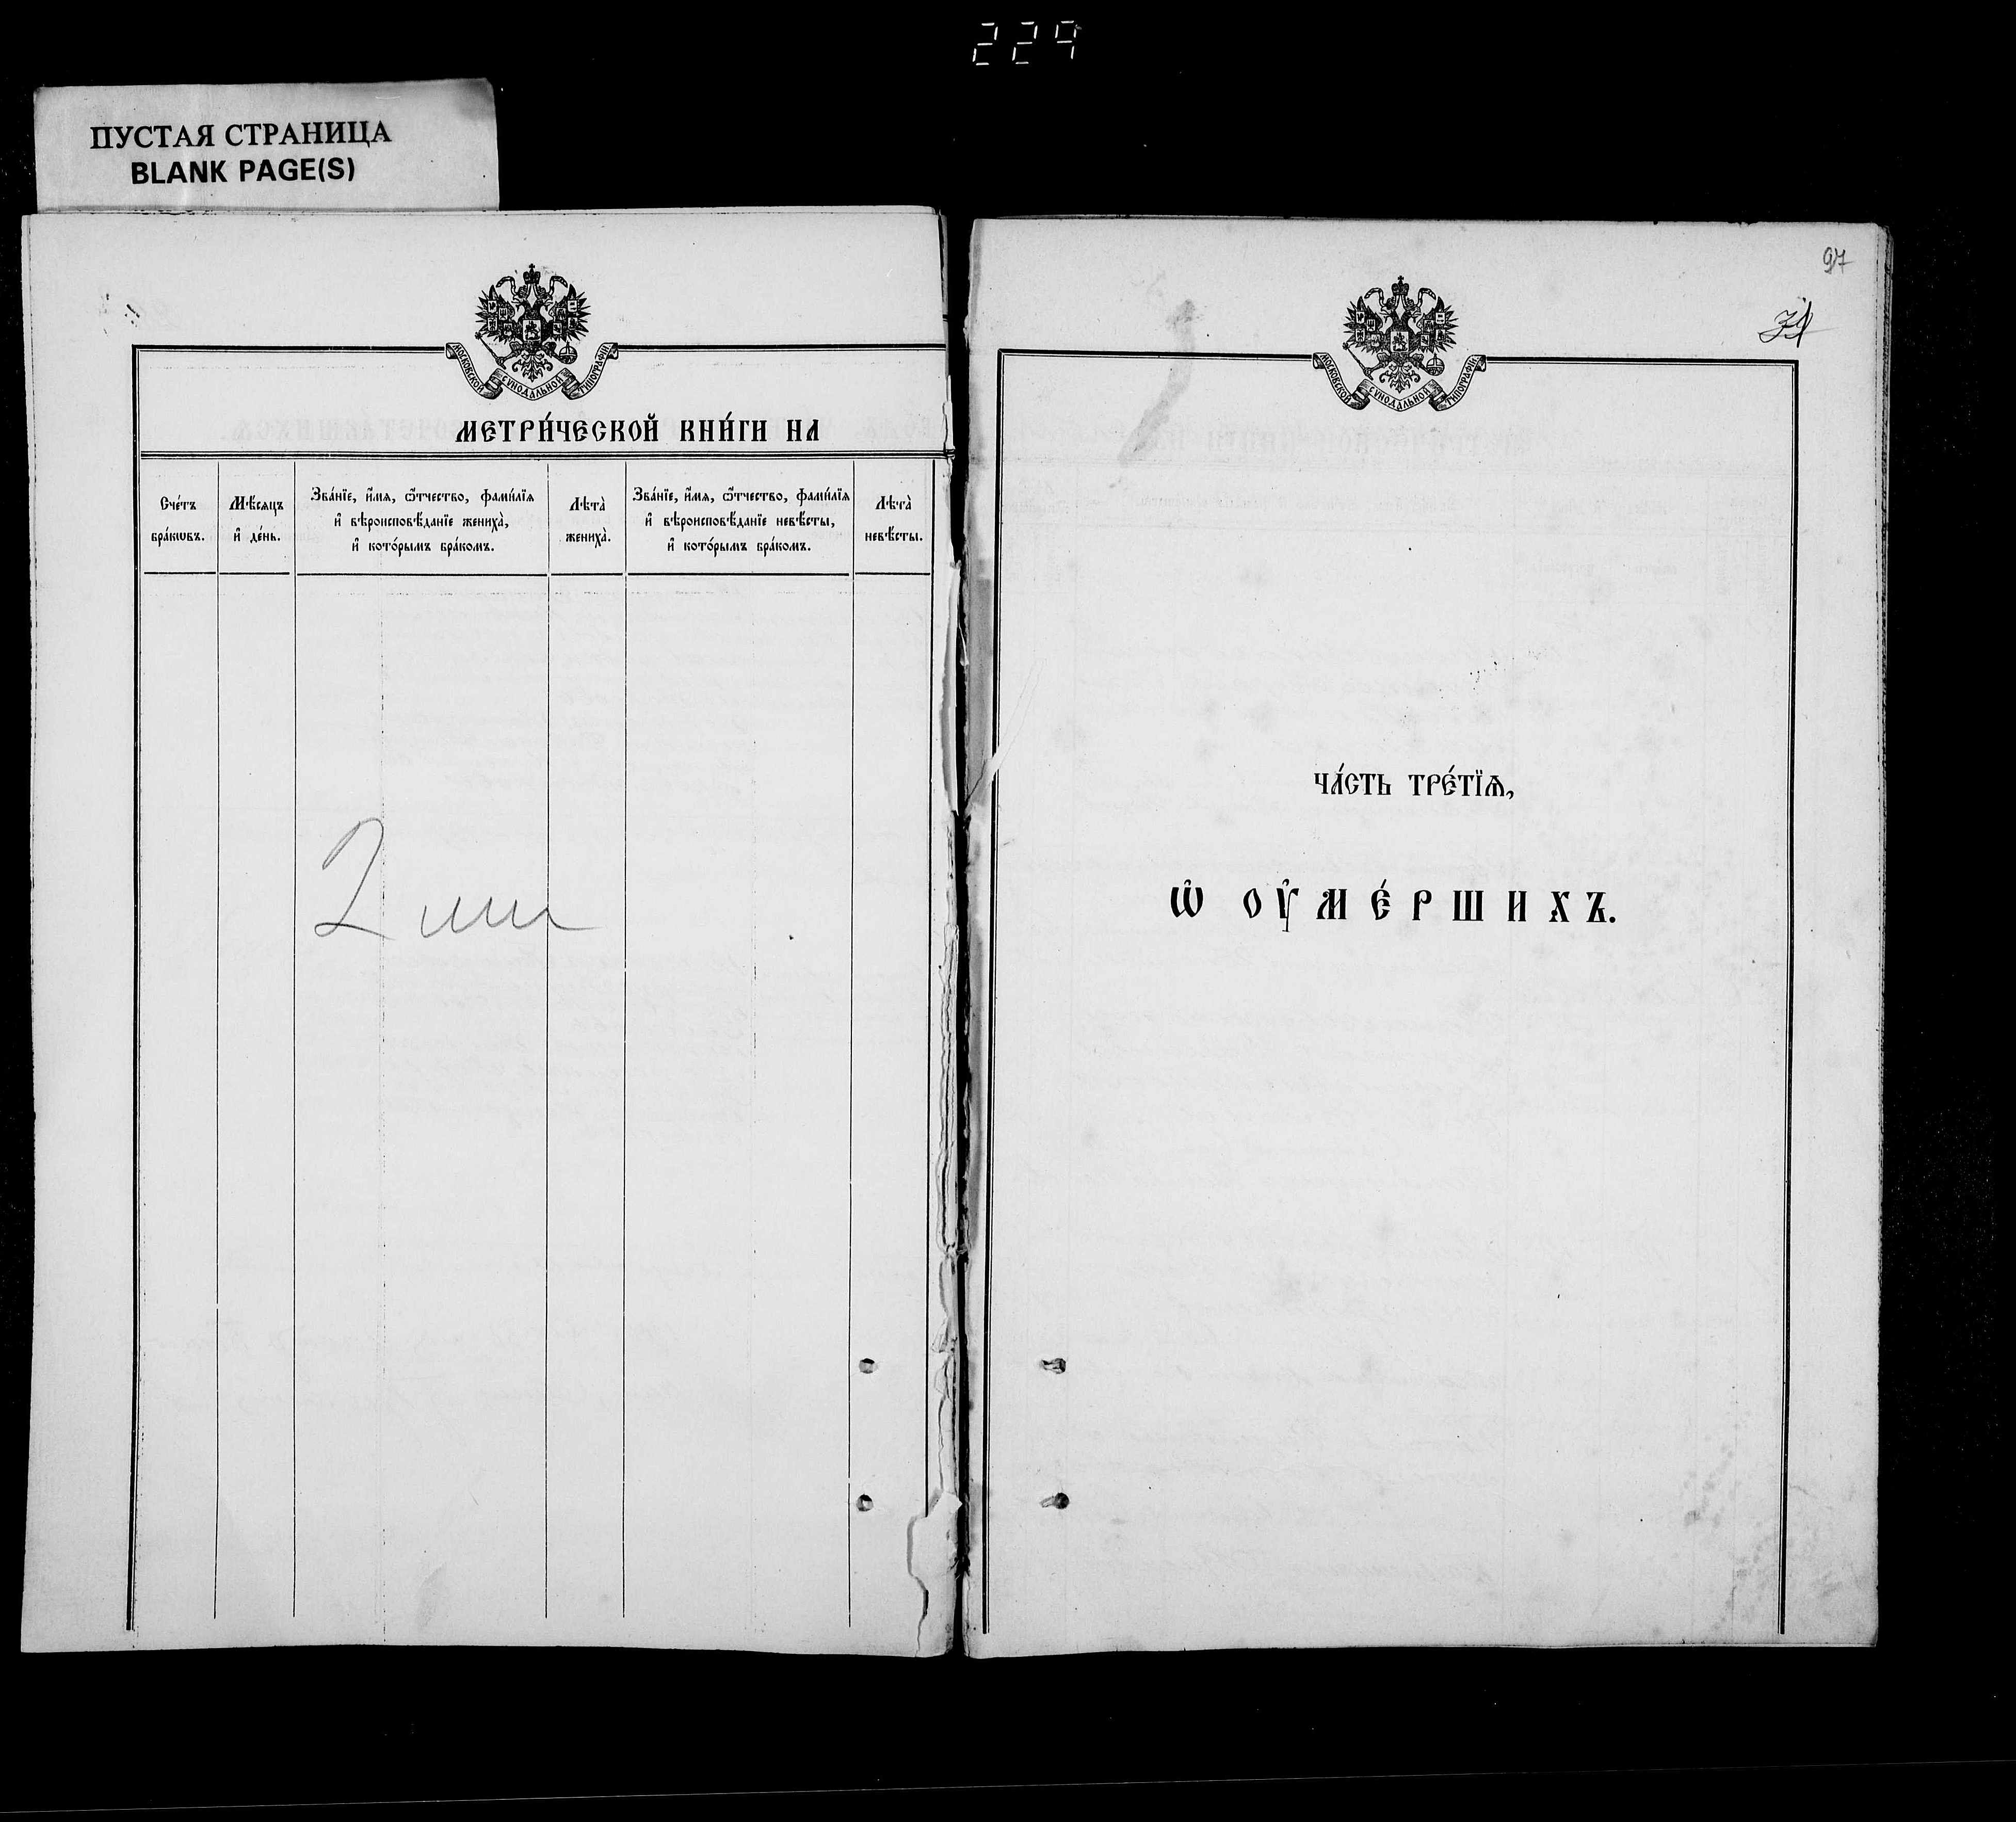 229
ПУСТАЯ СТРАНИЦА
BLANK PAGE(S)
МОСКОВСКОЙ СУНОДАЛЬНОЙ ТИПОГРАФІИ
МЕТРИ́ЧЕСКОЙ КНИ́ГИ НА
Сче́тъ бра́кѡвъ.
Мѣ́сѧцъ и҆ де́нь.
Зва́нїе, и҆́мѧ, ѻ҆́тчество, фами́лїѧ
и҆ вѣроисповѣ́данїе женихà,
и҆ кото́рымъ бра́комъ.
Лѣтà женихà.
Зва́нїе, и҆́мѧ, ѻ҆́тчество, фами́лїѧ
и҆ вѣроисповѣ́данїе невѣ́сты,
и҆ кото́рымъ бра́комъ.
Лѣтà невѣ́сты.
97
МОСКОВСКОЙ СУНОДАЛЬНОЙ ТИПОГРАФІИ
ЧА́СТЬ ТРЕ́ТЇѦ,
Ѡ҆ ОУ҆МЕ́РШИХЪ.